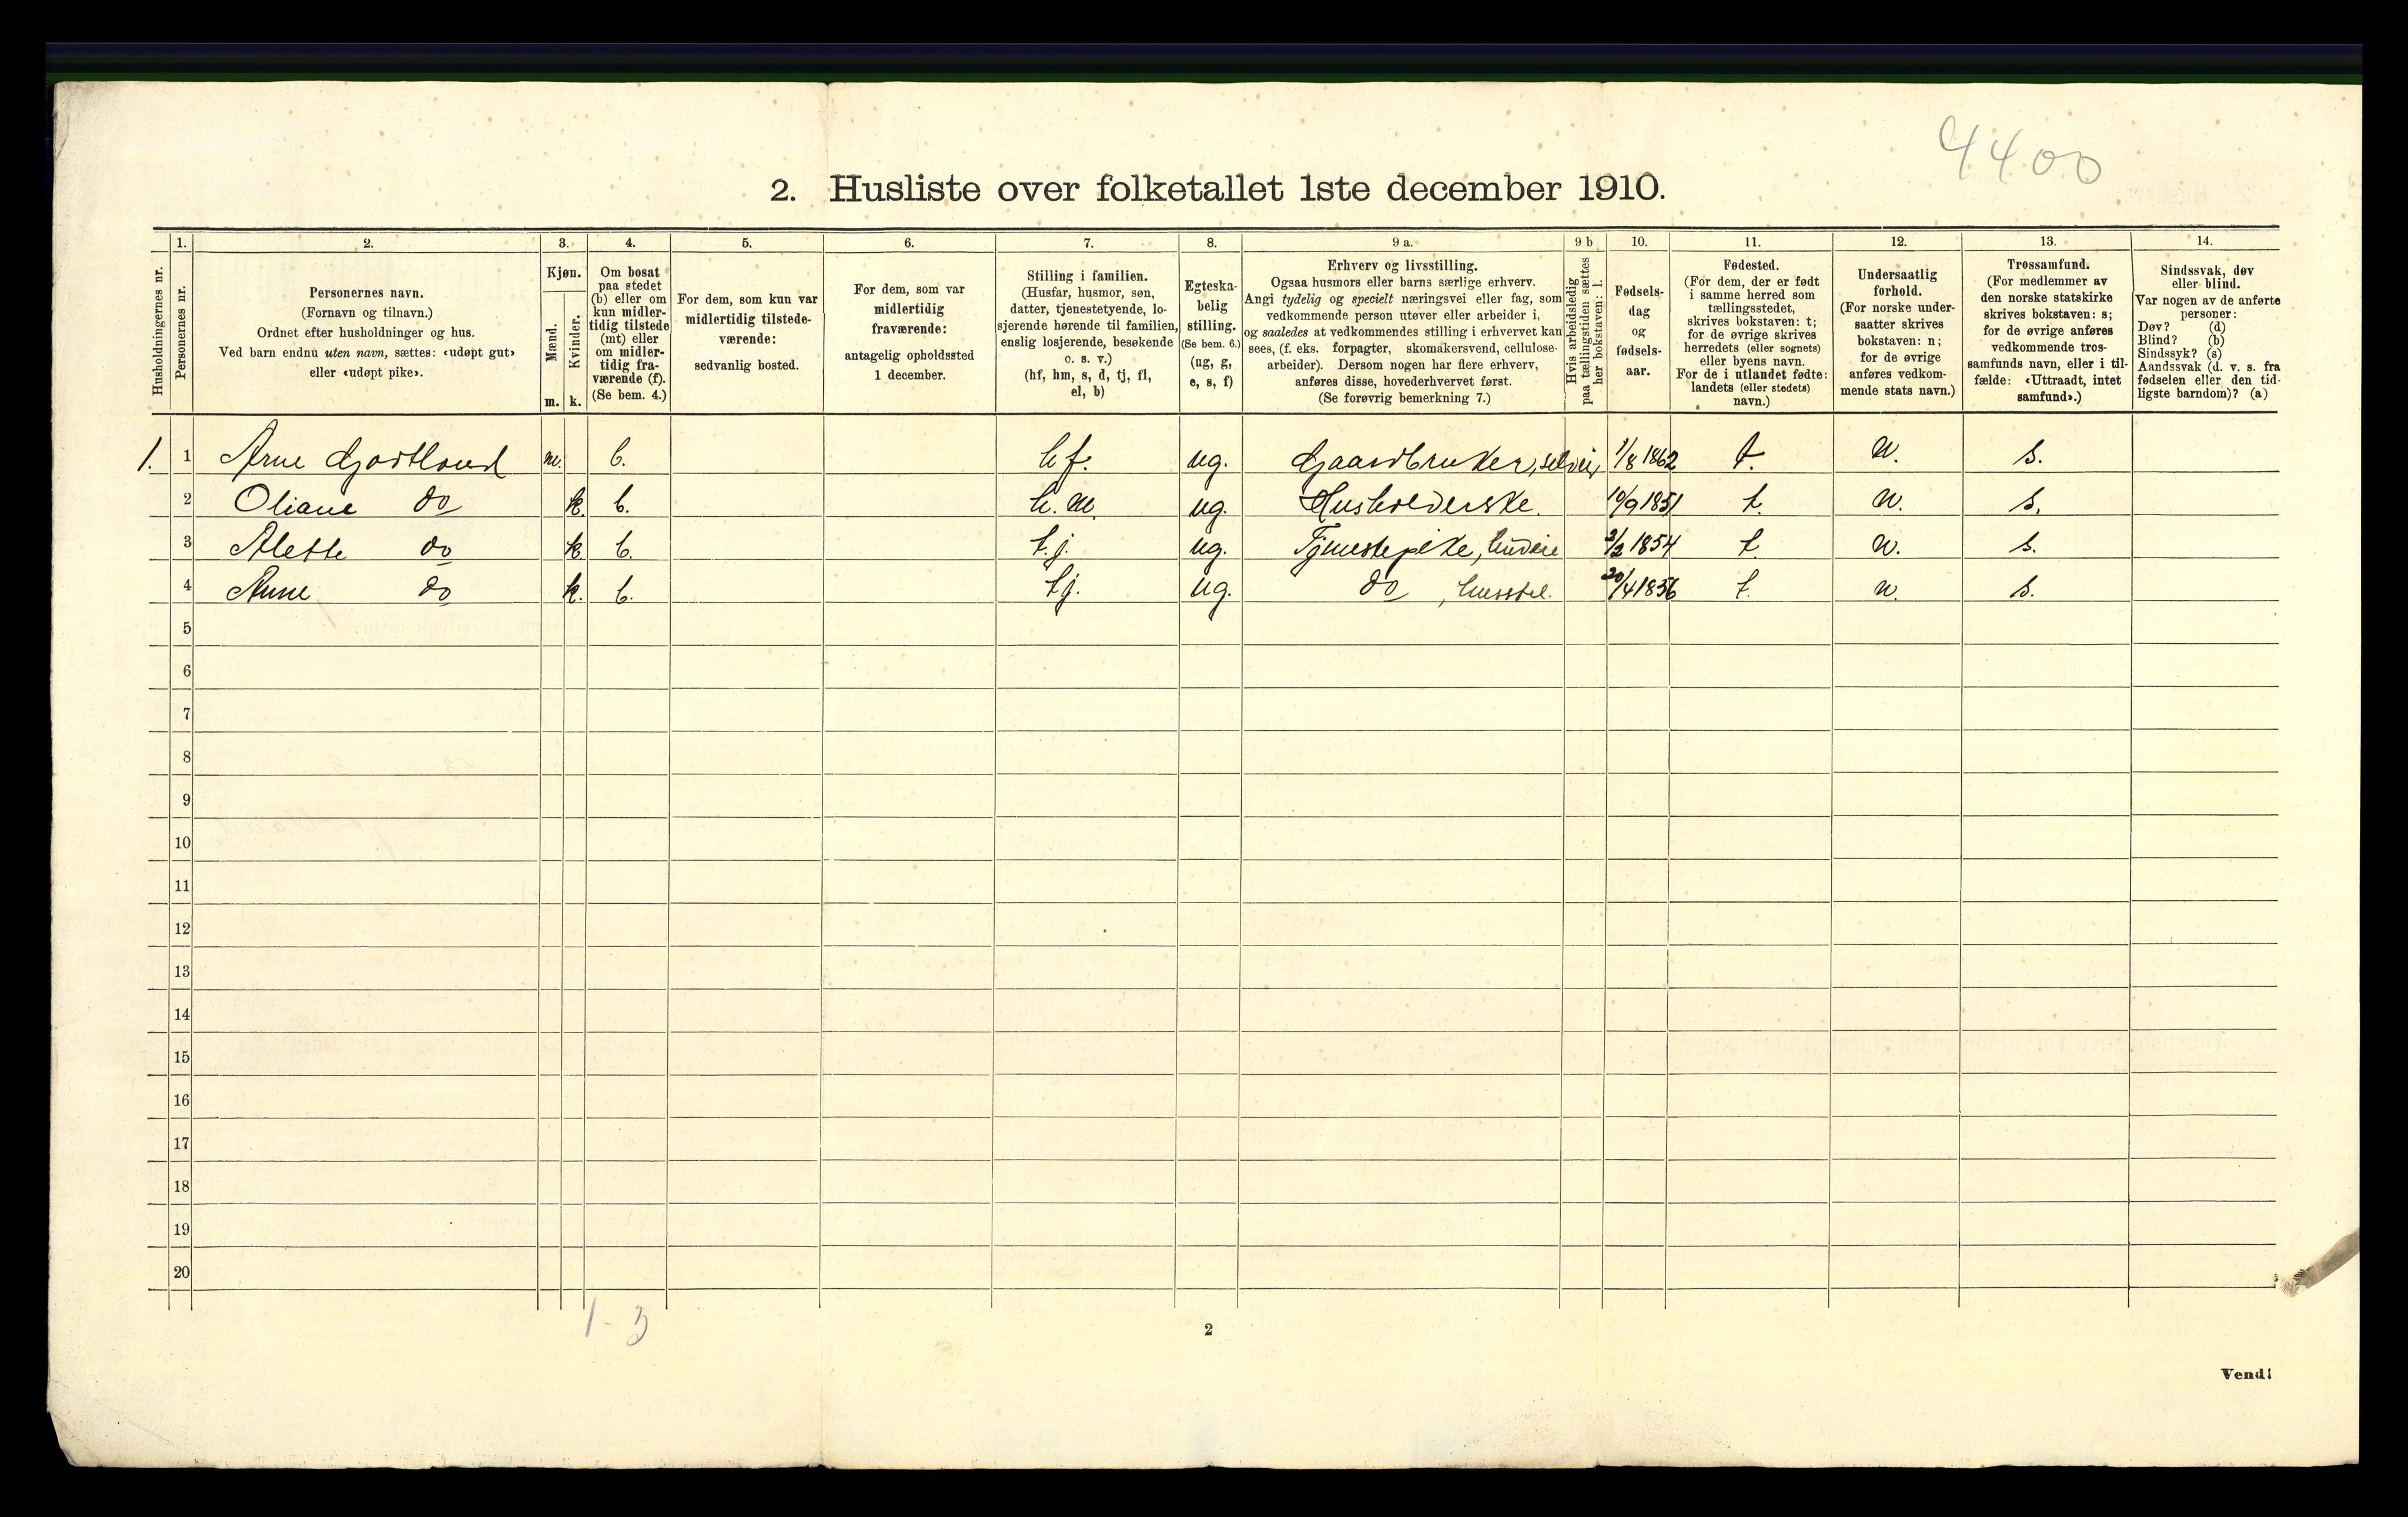 4400
2. Husliste over folketallet 1ste december 1910.
Husholdningernes nr.
1.
Personernes nr.
2.
Personernes navn.
(Fornavn og tilnavn.)
Ordnet efter husholdninger og hus.
Ved barn endnu uten navn, sættes: «udøpt gut»
eller «udøpt pike».
3.
Kjøn.
Mænd.
m.
Kvinder.
k.
4.
Om bosat
paa stedet
(b) eller om
kun midler-
tidig tilstede
(mt) eller
om midler-
tidig fra-
værende (f).
(Se bem. 4.)
5.
For dem, som kun var
midlertidig tilstede-
værende:
sedvanlig bosted.
6.
For dem, som var
midlertidig
fraværende:
antagelig opholdssted
1 december.
7.
Stilling i familien.
(Husfar, husmor, søn,
datter, tjenestetyende, lo-
sjerende hørende til familien,
enslig losjerende, besøkende
o. s. v.)
(hf, hm, s, d, tj, fl,
el, b)
8.
Egteska-
belig
stilling.
(Se bem. 6.)
(ug, g,
e, s, f)
9 a.
Erhverv og livsstilling.
Ogsaa husmors eller barns særlige erhverv.
Angi tydelig og specielt næringsvei eller fag, som
vedkommende person utøver eller arbeider i,
og saaledes at vedkommendes stilling i erhvervet kan
sees, (f. eks. forpagter, skomakersvend, cellulose-
arbeider). Dersom nogen har flere erhverv,
anføres disse, hovederhvervet først.
(Se forøvrig bemerkning 7.)
9 b
Hvis arbeidsledig
paa tællingstiden sættes
her bokstaven: l.
10.
Fødsels-
dag
og
fødsels-
aar.
11.
Fødested.
(For dem, der er født
i samme herred som
tællingsstedet,
skrives bokstaven: t;
for de øvrige skrives
herredets (eller sognets)
eller byens navn.
For de i utlandet fødte:
landets (eller stedets)
navn.)
12.
Undersaatlig
forhold.
(For norske under-
saatter skrives
bokstaven: n;
for de øvrige
anføres vedkom-
mende stats navn.)
13.
Trossamfund.
(For medlemmer av
den norske statskirke
skrives bokstaven: s;
for de øvrige anføres
vedkommende tros-
samfunds navn, eller i til-
fælde: «Uttraadt, intet
samfund».)
14.
Sindssvak, døv
eller blind.
Var nogen av de anførte
personer:
Døv? (d)
Blind? (b)
Sindssyk? (s)
Aandssvak (d. v. s. fra
fødselen eller den tid-
ligste barndom)? (a)
1. 1 Arne Gjortland m. b. hf. ug. Gaardbruker, selveier 1/8 1862 t. n. s.
2 Oliane do k. b. h.m. ug. Husholderske. 10/9 1851 t. n. s.
3 Alette do k. b. t.j. ug. Tjenestepike, 1854 t. n. s.
4 Anne do k. b. tj. ug. do, husstel. 20/4 1856 t. n. s.
5
6
7
8
9
10
11
12
13
14
15
16
17
18
19
20
1-3
2
Vend!